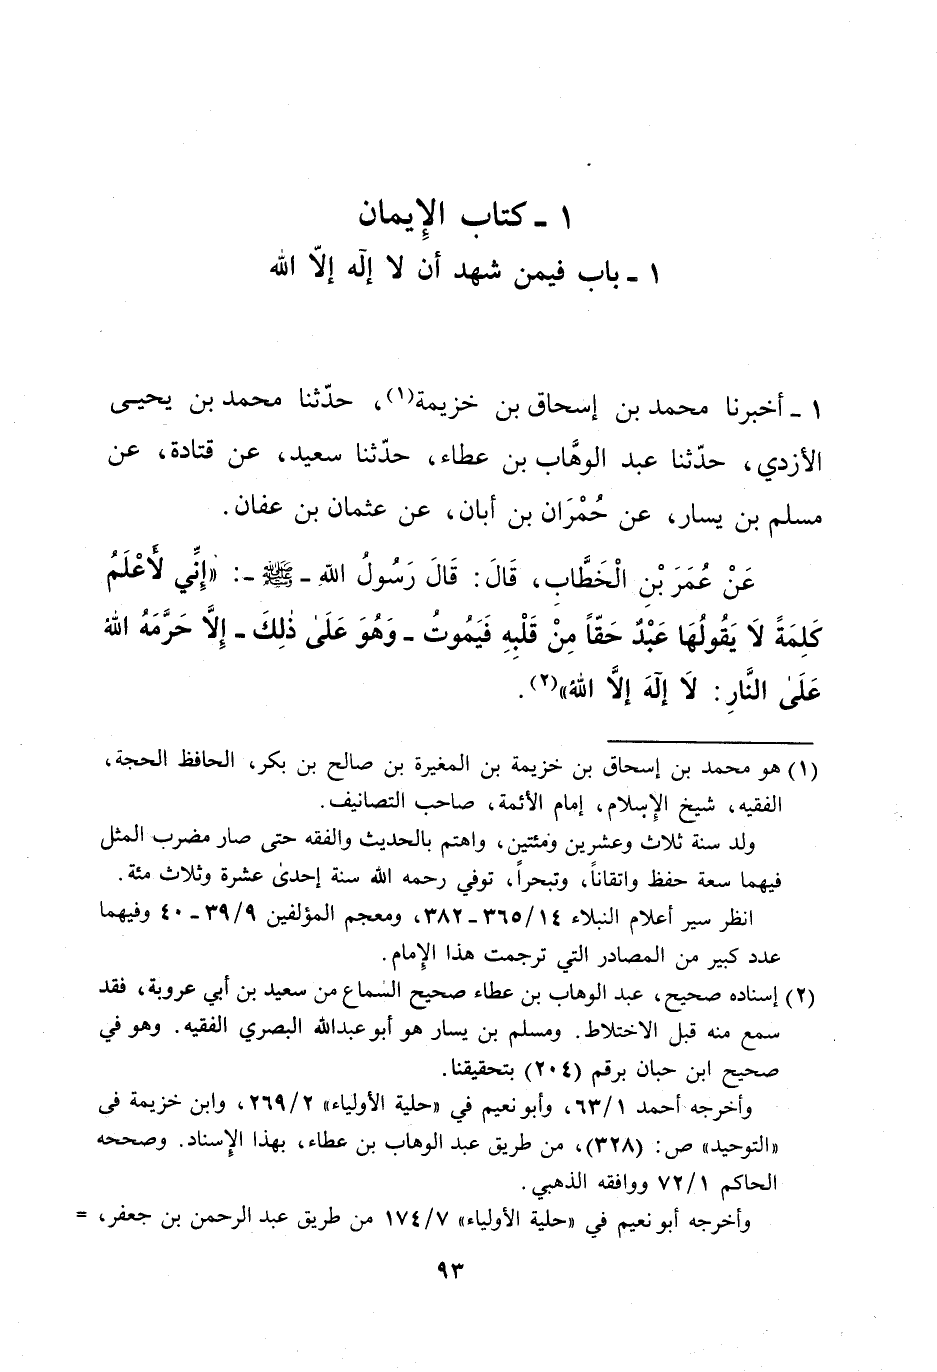 ١ ـ كتاب الإيمان
١ ـ باب فيمن شهد أن لا إلٓه إلاّ الله
١ ـ أخبرنا محمد بن إسحاق بن خزيمة(١)، حدّثنا محمد بن يحيى
الأزدي، حدّثنا عبد الوهَّاب بن عطاء، حدّثنا سعيد، عن قتادة، عن
مسلم بن يسار، عن حُمْرَان بن أبان، عن عثمان بن عفان.
عَنْ عُمَرَ بْنِ الْخَطَّابِ، قَالَ: قَالَ رَسُولُ اللهِ ـ ﷺ ـ: «إِنِّي لأَعْلَمُ
كَلِمَةً لَا يَقُولُهَا عَبْدٌ حَقّاً مِنْ قَلْبِهِ فَيَمُوتُ ـ وَهُوَ عَلَىٰ ذٰلِكَ ـ إِلَّا حَرَّمَهُ اللهُ
عَلَىٰ النَّارِ: لَا إِلٓهَ إِلَّا اللهُ»(٢).
(١) هو محمد بن إسحاق بن خزيمة بن المغيرة بن صالح بن بكر، الحافظ الحجة،
الفقيه، شيخ الإسلام، إمام الأئمة، صاحب التصانيف.
ولد سنة ثلاث وعشرين ومئتين، واهتم بالحديث والفقه حتى صار مضرب المثل
فيهما سعة حفظ واتقاناً، وتبحراً، توفي رحمه الله سنة إحدىٰ عشرة وثلاث مئة.
انظر سير أعلام النبلاء ٣٦٥/١٤ ـ ٣٨٢، ومعجم المؤلفين ٣٩/٩ ـ ٤٠ وفيهما
عدد كبير من المصادر التي ترجمت هذا الإمام.
(٢) إسناده صحيح، عبد الوهاب بن عطاء صحيح السماع من سعيد بن أبي عروبة، فقد
سمع منه قبل الاختلاط. ومسلم بن يسار هو أبو عبدالله البصري الفقيه. وهو في
صحيح ابن حبان برقم (٢٠٤) بتحقيقنا.
وأخرجه أحمد ٦٣/١، وأبو نعيم في «حلية الأولياء» ٢٦٩/٢، وابن خزيمة فى
«التوحيد» ص: (٣٢٨)، من طريق عبد الوهاب بن عطاء، بهذا الإسناد. وصححه
الحاكم ٧٢/١ ووافقه الذهبي.
وأخرجه أبو نعيم في «حلية الأولياء» ١٧٤/٧ من طريق عبد الرحمن بن جعفر، =
٩٣